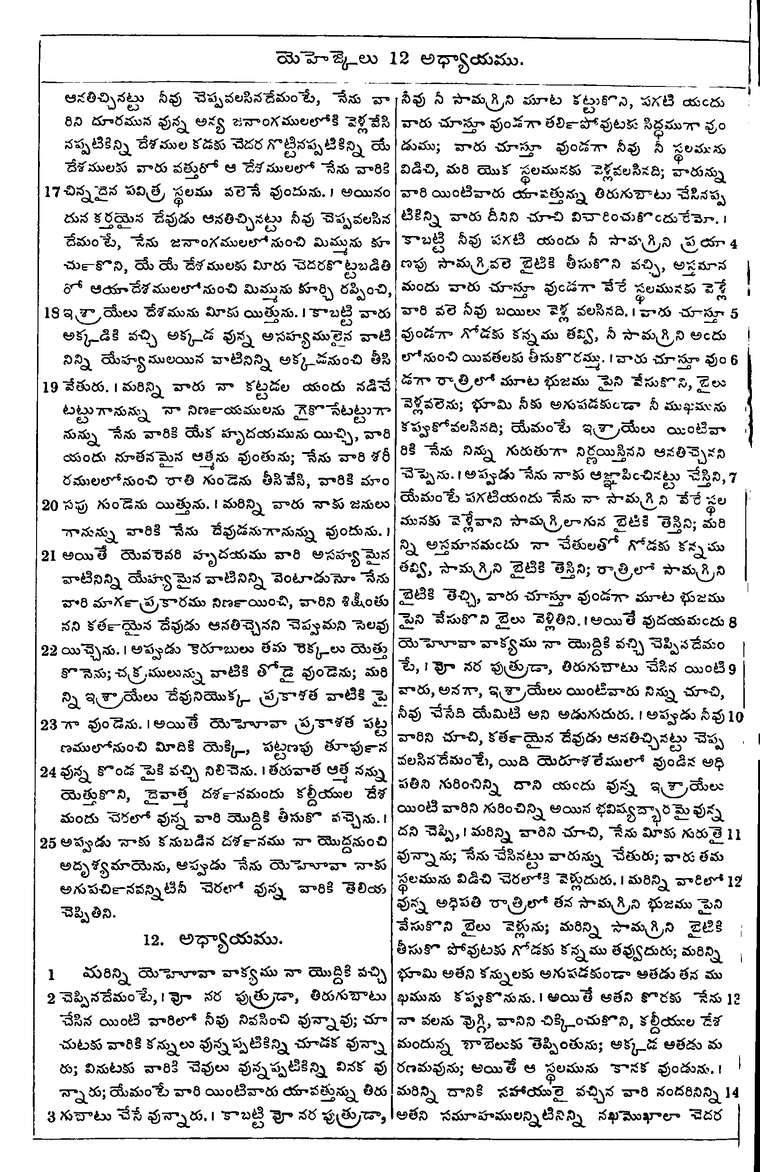 యెహెజ్కెలు 12 అధ్యాయము.
ఆనతిచ్చినట్టు నీవు చెప్పవలసినదేమంటే, నేను వా
రిని దూరమున వున్న అన్య జనాంగములలోకి వెళ్లవేసి
నప్పటికిన్ని దేశముల కడకు చెదర గొట్టినప్పటికిన్ని యే
దేశములకు వారు వత్తురో ఆ దేశములలో నేను వారికి
17 చిన్నదైన పవిత్ర స్థలము వలెనే వుందును. । అయినం
దున కర్తయైన దేవుడు ఆనతిచ్చినట్టు నీవు చెప్పవలసిన
దేమంటే, నేను జనాంగములలోనుంచి మిమ్మును కూ
ర్చుకొని, యే యే దేశములకు మీరు చెదరకొట్టబడితి
రో ఆయా దేశములలోనుంచి మిమ్మును కూర్చి రప్పించి,
18 ఇశ్రాయేలు దేశమును మీకు యిత్తును. । కాబట్టి వారు
అక్కడికి వచ్చి అక్కడ వున్న అసహ్యములైన వాటి
నిన్ని యేహ్యములయిన వాటినిన్ని అక్కడనుంచి తీసి
19 వేతురు. । మరిన్ని వారు నా కట్టడల యందు నడిచే
టట్టుగానున్ను నా నిర్ణయములను గైకొనేటట్టుగా
నున్ను నేను వారికి యేక హృదయమును యిచ్చి, వారి
యందు నూతనమైన ఆత్మను వుంతును; నేను వారి శరీ
రములలోనుంచి రాతి గుండెను తీసివేసి, వారికి మాం
20 సపు గుండెను యిత్తును. । మరిన్ని వారు నాకు జనులు
గానున్ను వారికి నేను దేవుడనుగానున్ను వుందును. ।
21 అయితే యెవరెవరి హృదయము వారి అసహ్యమైన
వాటినిన్ని యేహ్యమైన వాటినిన్ని వెంటాడునో నేను
వారి మార్గప్రకారము నిర్ణయించి, వారిని శిక్షింతు
నని కర్తయైన దేవుడు ఆనతిచ్చెనని చెప్పుమని సెలవు
22 యిచ్చెను. । అప్పుడు కెరూబులు తమ రెక్కలు యెత్తు
కొనెను; చక్రములున్ను వాటికి తోడై వుండెను; మరి
న్ని ఇశ్రాయేలు దేవునియొక్క ప్రకాశత వాటికి పై
23 గా వుండెను. । అయితే యెహోవా ప్రకాశత పట్ట
ణములోనుంచి మీదికి యెక్కి, పట్టణపు తూర్పున
24 వున్న కొండ పైకి వచ్చి నిలిచెను. । తరువాత ఆత్మ నన్ను
యెత్తుకొని, దైవాత్మ దర్శనమందు కల్దీయుల దేశ
మందు చెరలో వున్న వారి యొద్దికి తీసుకొ వచ్చెను. ।
25 అప్పుడు నాకు కనుబడిన దర్శనము నా యొద్దనుంచి
అదృశ్యమాయెను, అప్పుడు నేను యెహోవా నాకు
అగుపర్చినవన్నిటినీ చెరలో వున్న వారికి తెలియ
చెప్పితిని.
12. అధ్యాయము.
1 మరిన్ని యెహోవా వాక్యము నా యొద్దికి వచ్చి
2 చెప్పినదేమంటే, । వో నర పుత్రుడా, తిరుగుబాటు
చేసిన యింటి వారిలో నీవు నివసించి వున్నావు; చూ
చుటకు వారికి కన్నులు వున్నప్పటికిన్ని చూడక వున్నా
రు; వినుటకు వారికి చెవులు వున్నప్పటికిన్ని వినక వు
న్నారు; యేమంటే వారి యింటివారు యావత్తున్ను తిరు
3 గుబాటు చేసే వున్నారు. । కాబట్టి వో నర పుత్రుడా,
నీవు నీ సామగ్రిని మూట కట్టుకొని, పగటి యందు
వారు చూస్తూ వుండగా తర్లిపోవుటకు సిద్ధముగా వుం
డుము; వారు చూస్తూ వుండగా నీవు నీ స్థలమును
విడిచి, మరి యొక స్థలమునకు వెళ్లవలసినది; వారున్ను
వారి యింటివారు యావత్తున్ను తిరుగుబాటు చేసినప్ప
టికిన్ని వారు దీనిని చూచి విచారించుకొందురేమో. ।
కాబట్టి నీవు పగటి యందు నీ సామగ్రిని ప్రయా 4
ణపు సామగ్రివలె బైటికి తీసుకొని వచ్చి, అస్తమాన
మందు వారు చూస్తూ వుండగా వేరే స్థలమునకు వెళ్లే
వారి వలె నీవు బయిలు వెళ్ల వలసినది. । వారు చూస్తూ 5
వుండగా గోడకు కన్నము తవ్వి, నీ సామగ్రిని అందు
లోనుంచి యివతలకు తీసుకొరమ్ము. । వారు చూస్తూ వుం 6
డగా రాత్రిలో మూట భుజము పైని వేసుకొని, బైలు
వెళ్లవలెను; భూమి నీకు అగుపడకుండా నీ ముఖమును
కప్పుకోవలసినది; యేమంటే ఇశ్రాయేలు యింటివా
రికి నేను నిన్ను గురుతుగా నిర్ణయిస్తినని ఆనతిచ్చెనని
చెప్పెను. । అప్పుడు నేను నాకు ఆజ్ఞాపించినట్టు చేస్తిని, 7
యేమంటే పగటియందు నేను నా సామగ్రిని వేరే స్థల
మునకు వెళ్లేవాని సామగ్రిలాగున బైటికి తెస్తిని; మరి
న్ని అస్తమానమందు నా చేతులతో గోడకు కన్నము
తవ్వి, సామగ్రిని బైటికి తెస్తిని; రాత్రిలో సామగ్రిని
బైటికి తెచ్చి, వారు చూస్తూ వుండగా మూట భుజము
పైని వేసుకొని బైలు వెళ్లితిని. । అయితే వుదయమందు 8
యెహోవా వాక్యము నా యొద్దికి వచ్చి చెప్పినదేమం
టే, । వో నర పుత్రుడా, తిరుగుబాటు చేసిన యింటి 9
వారు, అనగా, ఇశ్రాయేలు యింటివారు నిన్ను చూచి,
నీవు చేసేది యేమిటి అని అడుగుదురు. । అప్పుడు నీవు 10
వారిని చూచి, కర్తయైన దేవుడు ఆనతిచ్చినట్టు చెప్ప
వలసినదేమంటే, యిది యెరూశలేములో వుండిన అధి
పతిని గురించిన్ని దాని యందు వున్న ఇశ్రాయేలు
యింటి వారిని గురించిన్ని అయిన భవిష్యద్భారమై వున్న
దని చెప్పి, । మరిన్ని వారిని చూచి, నేను మీకు గురుతై 11
వున్నాను; నేను చేసినట్టు వారున్ను చేతురు; వారు తమ
స్థలమును విడిచి చెరలోకి వెళ్లుదురు. । మరిన్ని వారిలో 12
వున్న అధిపతి రాత్రిలో తన సామగ్రిని భుజము పైని
వేసుకొని బైలు వెళ్లును; మరిన్ని సామగ్రిని బైటికి
తీసుకొ పోవుటకు గోడకు కన్నము తవ్వుదురు; మరిన్ని
భూమి అతని కన్నులకు అగుపడకుండా అతడు తన ము
ఖమును కప్పుకొనును. । అయితే ఆతని కొరకు నేను 13
నా వలను వొగ్గి, వానిని చిక్కించుకొని, కల్దీయుల దేశ
మందున్న బాబెలుకు తెప్పింతును; అక్కడ అతడు మ
రణమవును; అయితే ఆ స్థలమును కానక వుండును. ।
మరిన్ని దానికి సహాయులై వచ్చిన వారి నందరినిన్ని 14
అతని సమూహములన్నిటినిన్ని నఖముఖాలా చెదర